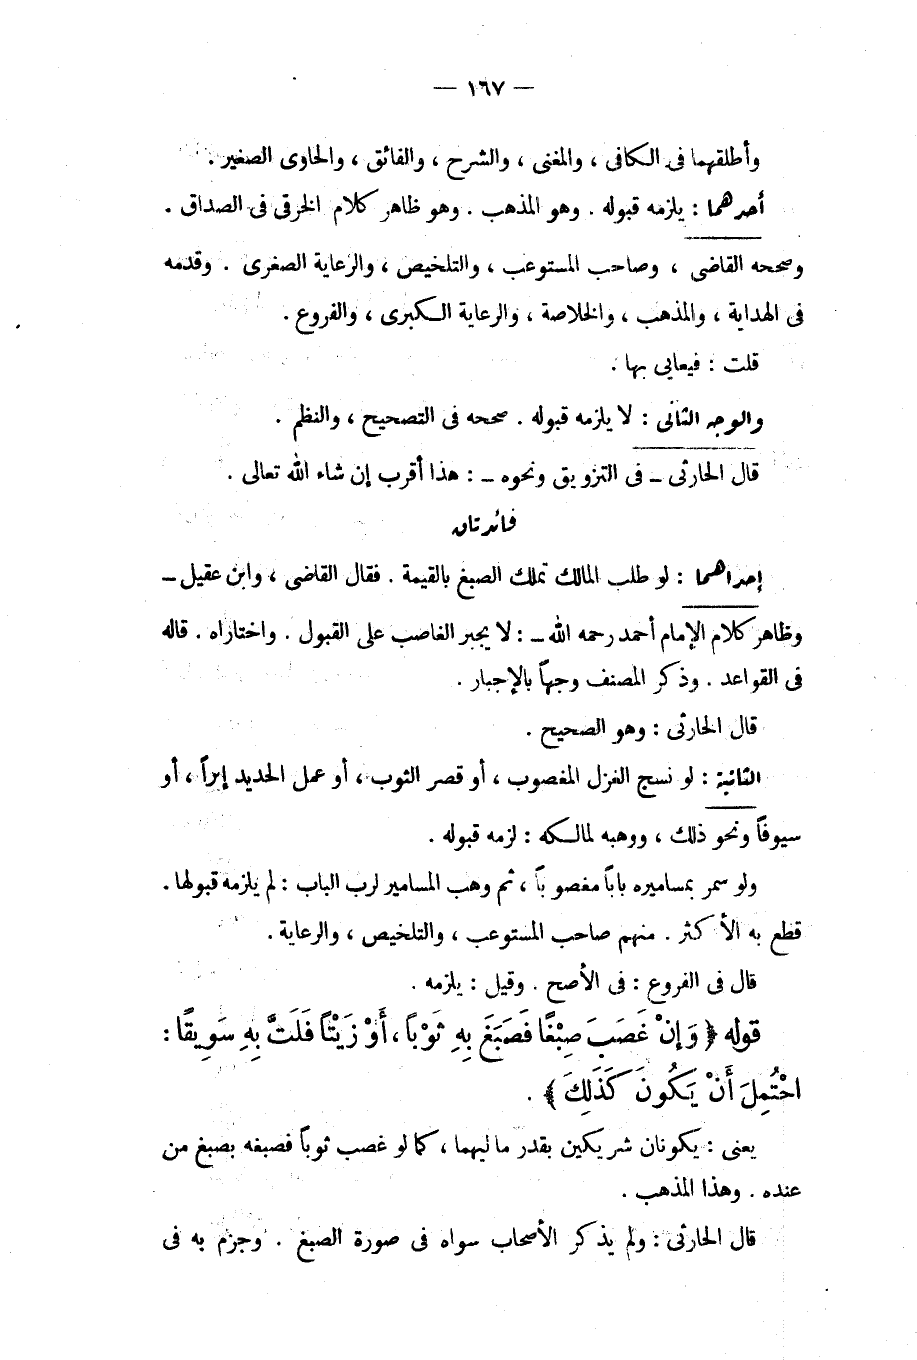 — ١٦٧ —
وأطلقهما فى الكافى ، والمغنى ، والشرح ، والفائق ، والحاوى الصغير .
أحدهما : يلزمه قبوله . وهو المذهب . وهو ظاهر كلام الخرقى فى الصداق .
وصححه القاضى ، وصاحب المستوعب ، والتلخيص ، والرعاية الصغرى . وقدمه
فى الهداية ، والمذهب ، والخلاصة ، والرعاية الكبرى ، والفروع .
قلت : فيعايى بها .
والوجه الثانى : لا يلزمه قبوله . صححه فى التصحيح ، والنظم .
قال الحارثى – فى التزويق ونحوه – : هذا أقرب إن شاء الله تعالى .
فائدتان
إحداهما : لو طلب المالك تملك الصبغ بالقيمة . فقال القاضى ، وابن عقيل –
وظاهر كلام الإمام أحمد رحمه الله – : لا يجبر الغاصب على القبول . واختاراه . قاله
فى القواعد . وذكر المصنف وجهاً بالإجبار .
قال الحارثى : وهو الصحيح .
الثانية : لو نسج الغزل المغصوب ، أو قصر الثوب ، أو عمل الحديد إبراً ، أو
سيوفاً ونحو ذلك ، ووهبه لمالكه : لزمه قبوله .
ولو سمر بمساميره باباً مغصوباً ، ثم وهب المسامير لرب الباب : لم يلزمه قبولها .
قطع به الأكثر . منهم صاحب المستوعب ، والتلخيص ، والرعاية .
قال فى الفروع : فى الأصح . وقيل : يلزمه .
قوله ﴿ وَإِنْ غَصَبَ صِبْغًا فَصَبَغَ بِهِ ثَوْبًا ، أَوْ زَيْتًا فَلَتَّ بِهِ سَوِيقًا :
احْتُمِلَ أَنْ يَكُونَ كَذَلِكَ ﴾ .
يعنى : يكونان شريكين بقدر ماليهما ، كما لو غصب ثوباً فصبغه بصبغ من
عنده . وهذا المذهب .
قال الحارثى : ولم يذكر الأصحاب سواه فى صورة الصبغ . وجزم به فى